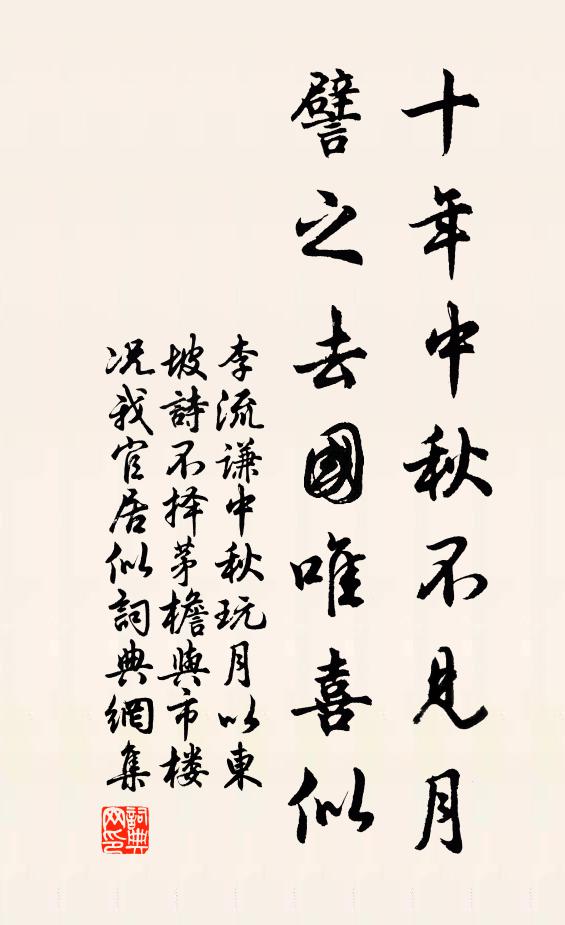 十年中秋不見月
譬之去國唯喜似
李流谦中秋玩月以東
坡詩不择茅檐與市楼
况我官居似詞典網集
詞典網印